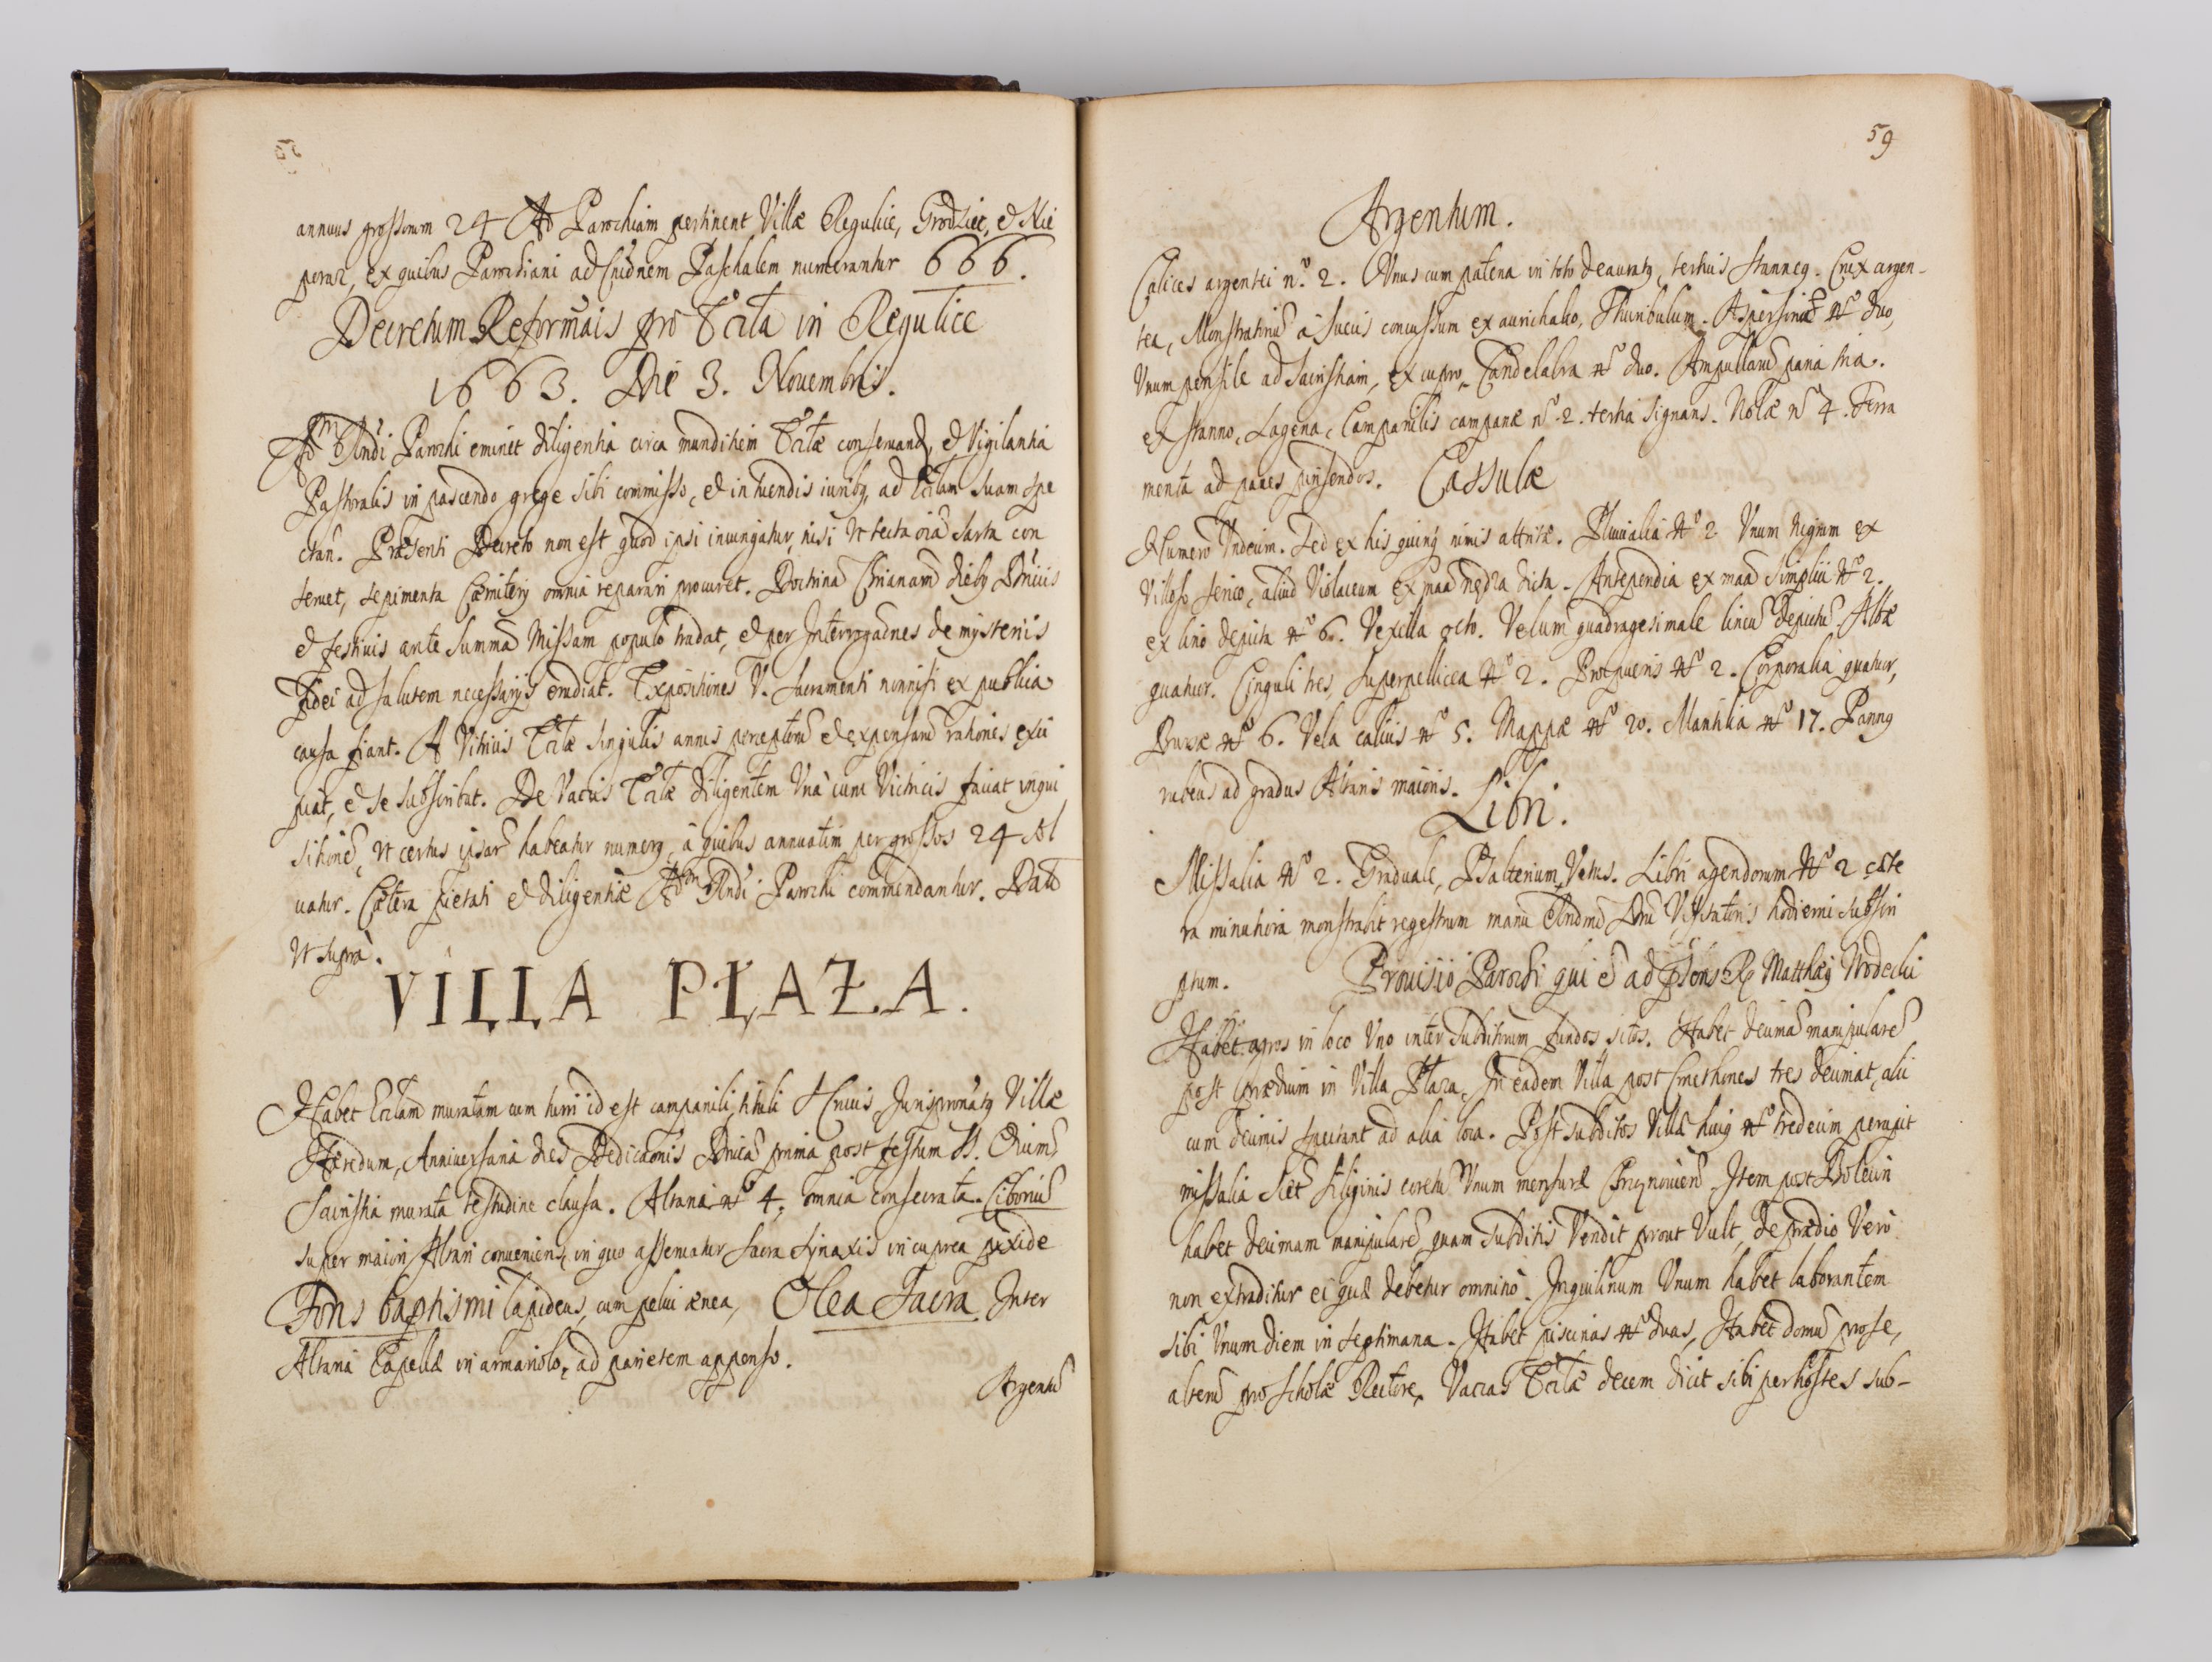 annuus grossorum 24 Ad Parochiam pertinent Villæ Regulice, Grodziec, et Nie
poraz, ex quibus Parochiani ad Cõionem Paschalem numerantur 666.
Decretum Reformãis pro Eccla in Regulice
1663. Die 3. Nouembris.
Adm Rndi Parochi eminet diligentia circa munditiem Ecclæ conseruand, et Vigilantia
Pastoralis in pascendo grege sibi commisso, et in tuendis iuribq ad Ecclam suam spe
ctan. Præsenti Decreto non est quod ipsi iniungatur, nisi Vt tecta oia sarta con
seruet, sepimenta Cæmiterij omnia reparari procuret. Doctrinã Chrianam diebq Dnicis
et festiuis ante Summã Missam populo tradat, et per Interrogaõnes de mysterijs
Fidei ad salutem necessarijs erudiat. Expositiones V. Sacramenti nonnisi ex publica
causa fiant. A Vitricis Ecclæ singulis annis perceptorũ et expensarũ rationes exci
piat, et se subscribat. De Vaccis Ecclæ diligentem Vnà cum Vitricis faciat inqui
sitionẽ, Vt certus ipsarũ habeatur numerq, à quibus annuatim per grossos 24 sol
uatur. Cætera pietati et diligentiæ Adm Rndi Parochi commendantur. Datũ
Vt supra.
VILLA PŁAZA.
Habet Ecclam muratam cum turri id est campanili, tituli S Crucis, Jurispronatq Villæ
Hæredum, Anniuersaria dies Dedicaõnis Dnica prima post festum SS. Oium.
Sacristia murata testudine clausa. Altaria no 4. omnia consecrata. Ciboriũ
super maiori Altari conueniens, in quo asseruatur Sacra Synaxis in cuprea pixide
Fons baptismi lapideus, cum pelui ænea, Olea Sacra Inter
Altaria Capellæ in armariolo, ad parietem appenso.
Argentũ
59
Argentum.
Calices argentei no. 2. Vnus cum patena in toto deauratq, tertius stanneq. Crux argen-
tea, Monstratoriũ à Suecis concussum ex aurichalco, Thuribulum. Aspersoria No duo,
Vnum pensile ad Sacristiam, ex cupro, Candelabra No duo. Ampullarũ paria tria.
ex stanno, Lagena, Campanilis campanæ no 2. tertia signans. Nolæ no 4. Ferra
menta ad panes pinsendos. Cassulæ
Numero Vndecim. Sed ex his quinq nimis attritæ. Pluuialia No 2 Vnum nigrum ex
Villoso serico, aliud Violaceum ex maa dicta. Antependia ex maa simplici No 2.
ex lino depicta No 6. Vexilla octo. Velum quadragesimale lineũ depictũ. Albæ
quatuor. Cinguli tres, Superpellicea No 2. Pro pueris No 2. Corporalia quatuor,
Bursæ No 6. Vela calicis No 5. Mappæ No 20. Mantilia No 17. Pannq
rubeus ad gradus Altaris maioris. Libri.
Missalia No 2. Graduale, Psalterium Vetus. Libri agendorum No 2 cæte
ra minutiora monstrabit regestrum manu Rndmi Dni Visitatoris hodierni subscri
ptum. Prouisio Parochi qui ẽ ad pñs Rq Matthæq Wodecki
Habet agros in loco Vno inter Subditorum fundos sitos. Habet decimã manipularẽ
post prædium in Villa Płaza, In eadem Villa post Cmethones tres decimat, alii
cum decimis spectant ad alia loca. Post subditos Villæ huiq No tredecim percipit
missalia Siliginis coretũ Vnum mensuræ. Item post Bolecin
habet decimam manipularẽ, quam subditis Vendit prout Vult, de prædio Verò
non extraditur ei quæ debetur omninò. Inquilinum Vnum habet laborantem
sibi Vnum diem in septimana. Habet piscinas No duas, Habet domũ pro se,
alterũ pro Scholæ Rectore. Vaccas Ecclæ decem dicit sibi per hostes sub-